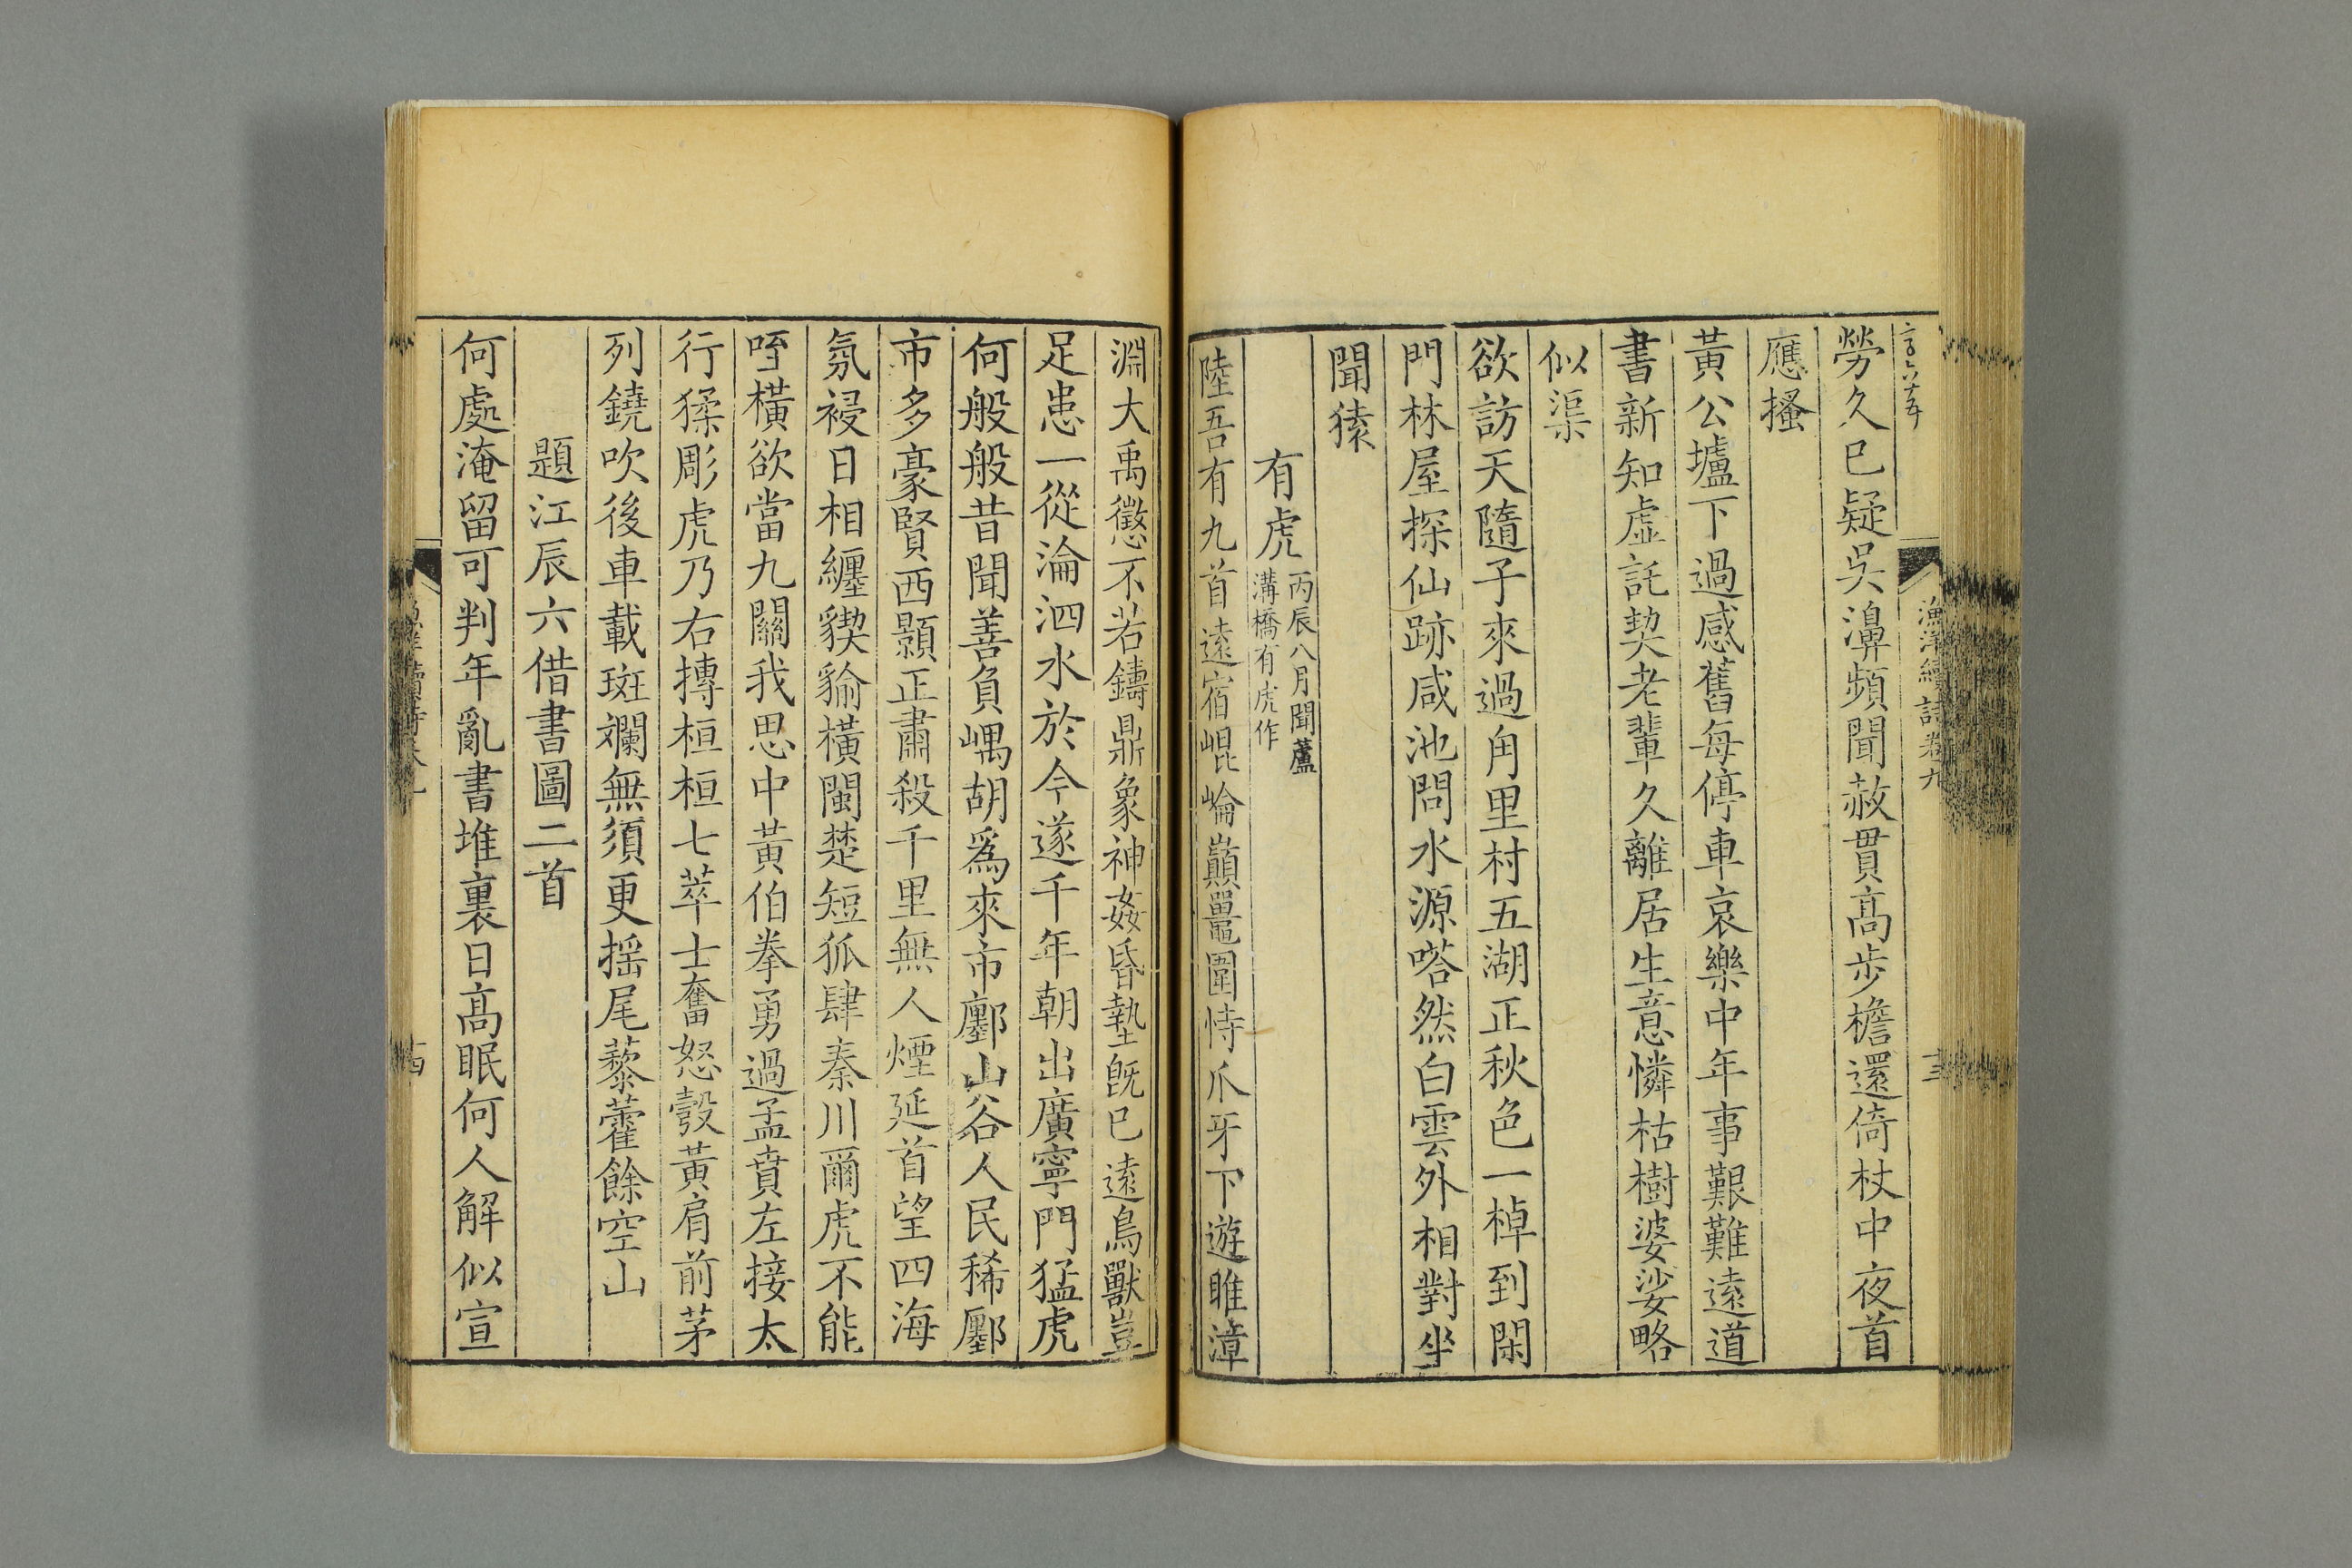 漁洋續詩卷九
十三
勞久已疑吳濞頻聞赦貫高步檐還倚杖中夜首
應搔
黃公壚下過感舊每停車哀樂中年事艱難遠道
書新知虛託契老輩久離居生意憐枯樹婆娑略
似渠
欲訪天隨子來過甪里村五湖正秋色一棹到閑
門林屋探仙跡咸池問水源嗒然白雲外相對坐
聞猿
有虎丙辰八月聞蘆
溝橋有虎作
陸吾有九首遠宿崐崘巔鼍圉恃爪牙下遊睢漳
淵大禹懲不若鑄鼎象神姦昏墊旣已遠鳥獸豈
足患一從淪泗水於今遂千年朝出廣寧門猛虎
何般般昔聞善負嵎胡爲來市鄽山谷人民稀鄽
市多豪賢西顥正肅殺千里無人煙延首望四海
氛祲日相纏貏貐橫閩楚短狐肆秦川爾虎不能
咥橫欲當九關我思中黃伯拳勇過孟賁左接太
行猱彫虎乃右摶桓桓七萃士奮怒彀黃肩前茅
列鐃吹後車載斑斕無須更搖尾藜藿餘空山
題江辰六借書圖二首
何處淹留可判年亂書堆裏日高眠何人解似宣
十四